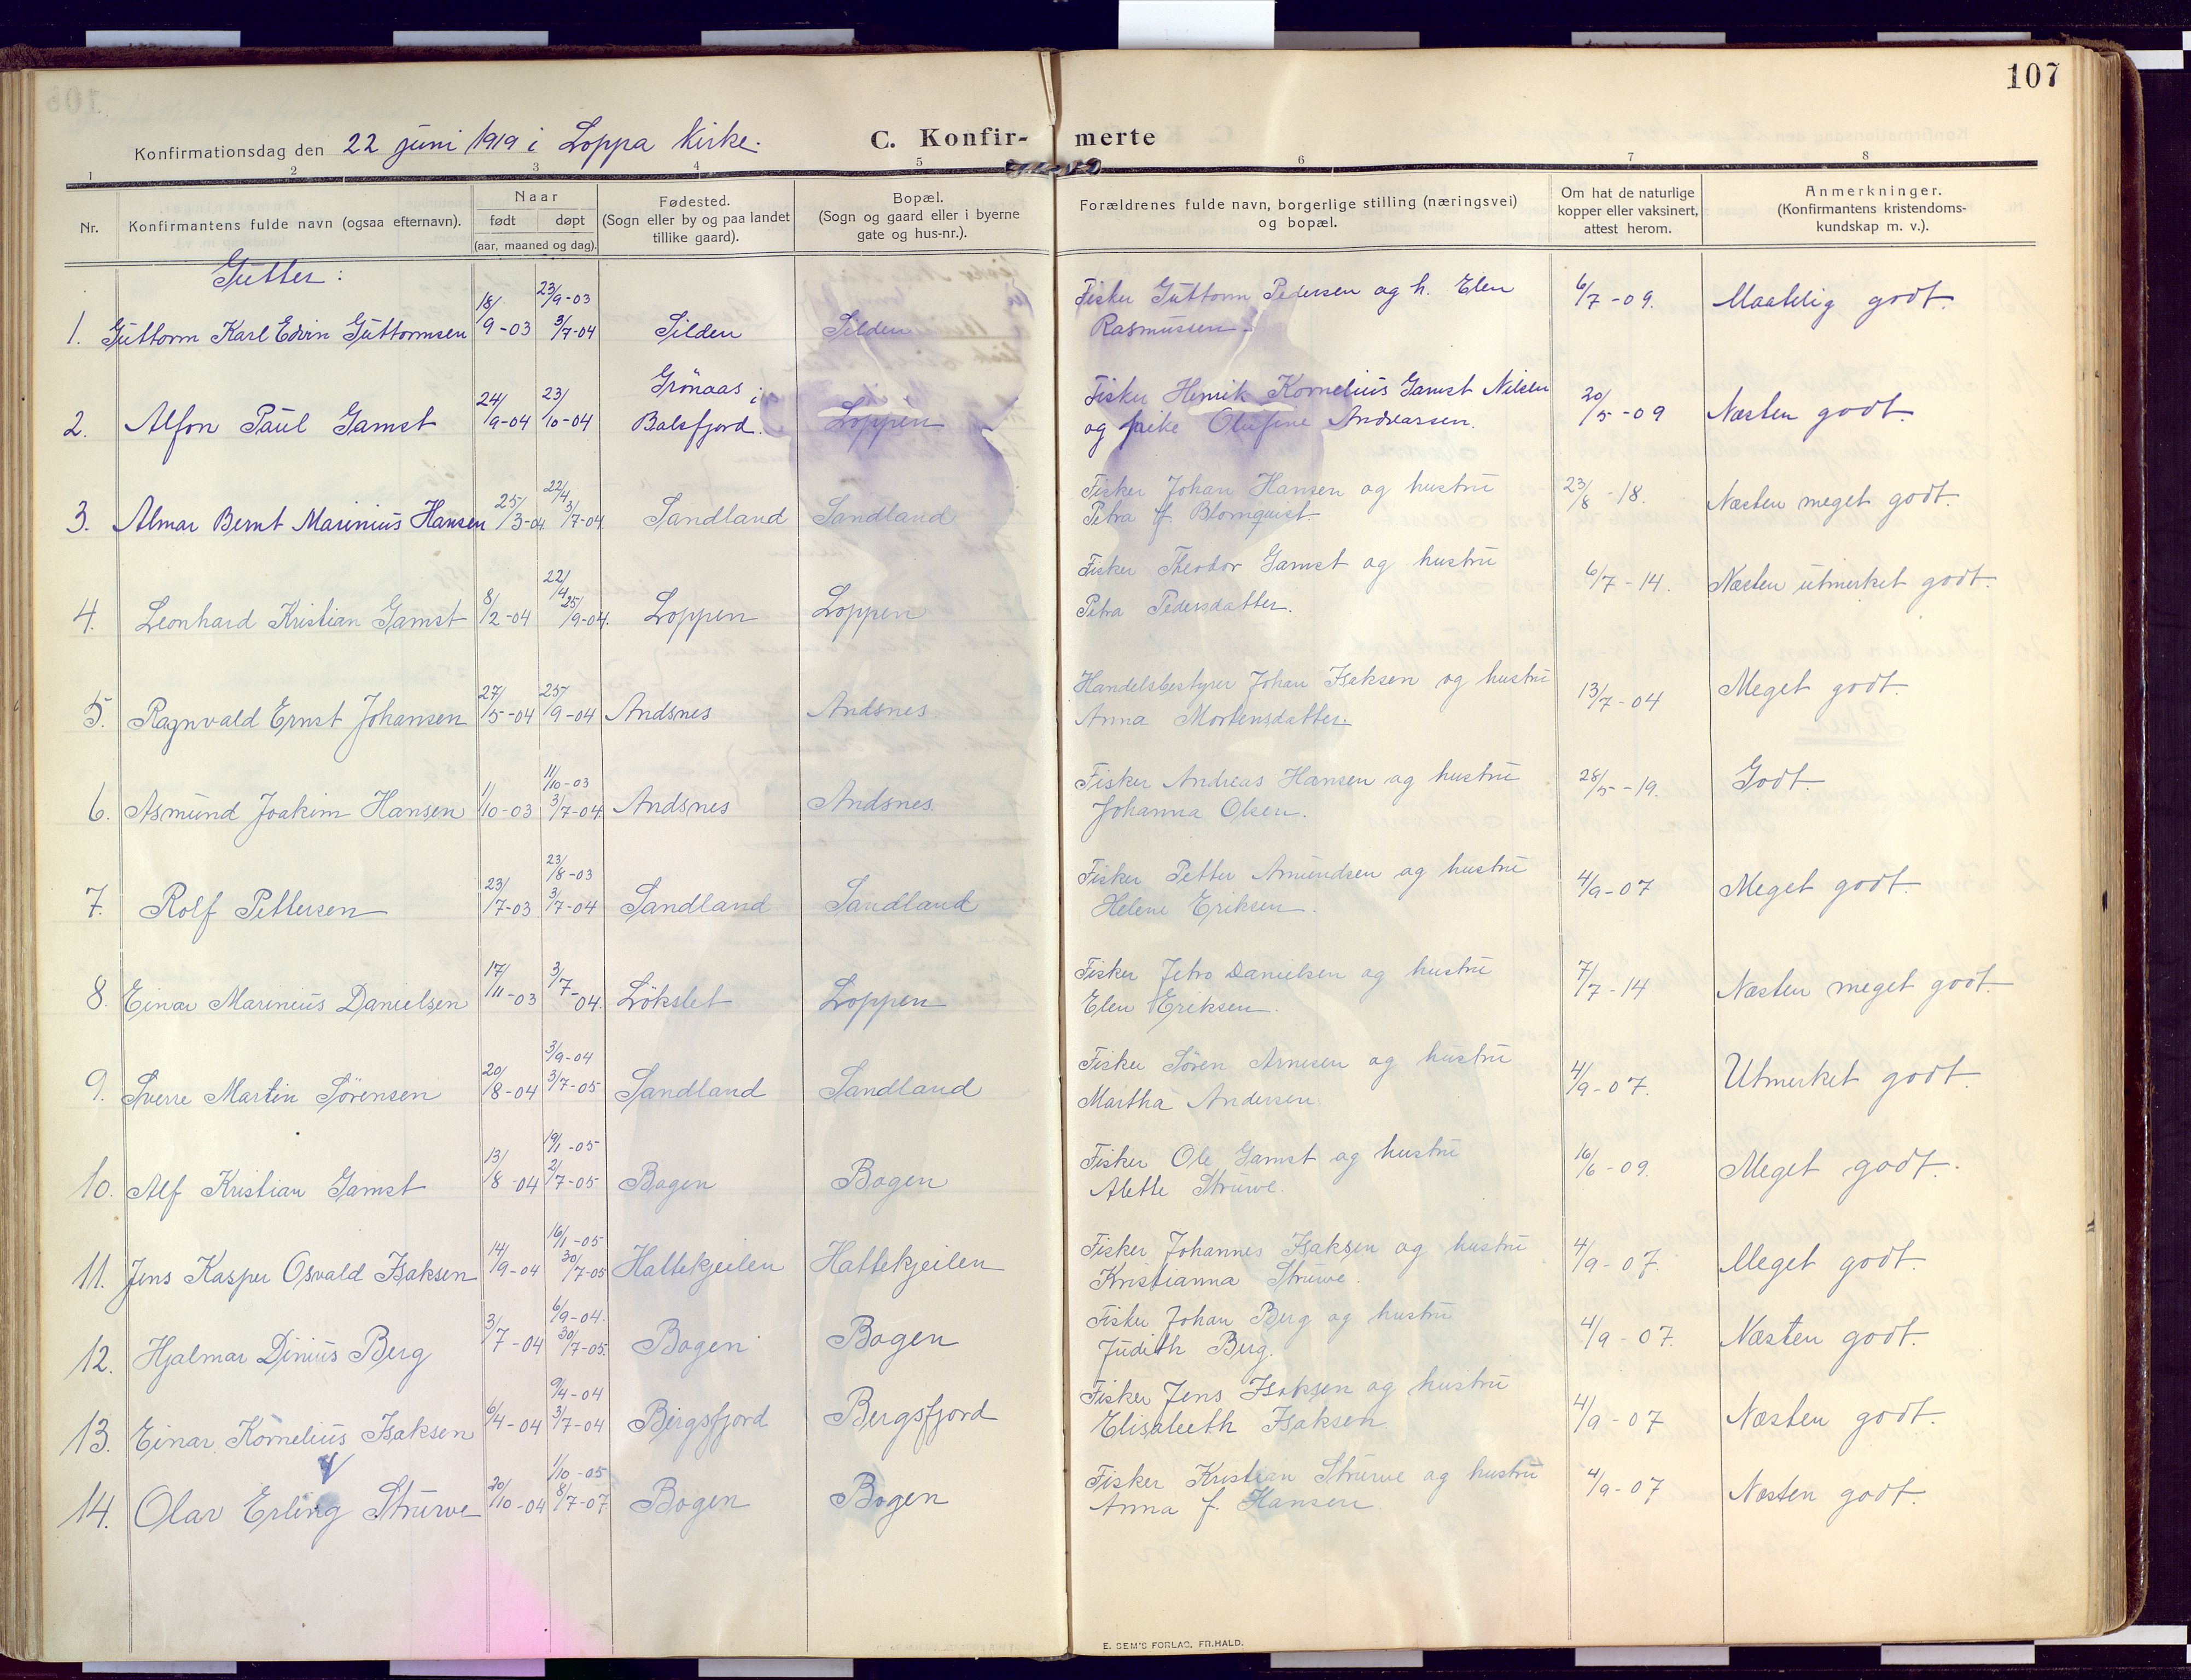 107
Konfirmationsdag den 22 juni 1919 i Loppa kirke.
C. Konfir- merte
1 2 3 4 5 6 7 8
Nr.
Konfirmantens fulde navn (ogsaa efternavn).
Naar
født døpt
(aar, maaned og dag).
Fødested.
(Sogn eller by og paa landet
tillike gaard).
Bopæl.
(Sogn og gaard eller i byerne
gate og hus-nr.).
Forældrenes fulde navn, borgerlige stilling (næringsvei)
og bopæl.
Om hat de naturlige
kopper eller vaksinert,
attest herom.
Anmerkninger.
(Konfirmantens kristendoms-
kundskap m. v.).
Gutter:
1. Guttorm Karl Edvin Guttormsen 18/9-03 23/9-03 3/7-04 Silden Silden Fisker Guttorm Pedersen og h. Elen
Rasmussen. 6/7-09. Maatelig godt.
2. Alfon Paul Gamst 24/9-04 23/10-04 Grönaas i
Balsfjord. Loppen Fisker Henrik Kornelius Gamst Nilsen
og pike Olufine Andreassen. 20/5-09 Næsten godt.
3. Almar Bernt Marinius Hansen 25/3-04 22/4 3/7-04 Sandland Sandland Fisker Johan Hansen og hustru
Petra f. Blomquist. 23/8-18. Næsten meget godt.
4. Leonhard Kristian Gamst 8/2-04 22/4 25/9-04. Loppen Loppen Fisker Theodor Gamst og hustru
Petra Pedersdatter. 6/7-14. Næsten utmerket godt.
5. Ragnvald Ernst Johansen 27/5-04 25/9-04 Andsnes Andsnes Handelsbestyrer Johan Isaksen og hustru
Anna Mortensdatter. 13/7-04 Meget godt.
6. Asmund Joakim Hansen 1/10-03 11/10-03 3/7-04. Andsnes Andsnes Fisker Andreas Hansen og hustru
Johanna Olsen. 28/5-19. Godt.
7. Rolf Pettersen 23/7-03 23/8-03 3/7-04 Sandland Sandland Fisker Petter Amundsen og hustru
Helene Eriksen. 4/9-07 Meget godt.
8. Einar Marinius Danielsen 17/11-03 3/7-04. Lökslet Loppen Fisker Jetro Danielsen og hustru
Elen Eriksen. 7/7-14 Næsten meget godt.
9. Sverre Martin Sörensen 20/8-04 3/9-04 3/7-05 Sandland Sandland Fisker Sören Arnesen og hustru
Martha Andersen 4/9-07. Utmerket godt.
10. Alf Kristian Gamst 13/8-04 19/1-05 2/7-05 Bogen Bogen Fisker Ole Gamst og hustru
Alette Struwe. 16/6-09. Meget godt.
11. Jens Kasper Osvald Isaksen 14/9-04 16/1-05 30/7-05 Hattekjeilen Hattekjeilen Fisker Johannes Isaksen og hustru
Kristianna Struwe. 4/9-07. Meget godt.
12. Hjalmar Dinius Berg 3/7-04 6/9-04. 30/7-05. Bogen Bogen Fisker Johan Berg og hustru
Judith Berg. 4/9-07. Næsten godt.
13. Einar Kornelius Isaksen 6/4-04 9/4-04 3/7-04 Bergsfjord Bergsfjord Fisker Jens Isaksen og hustru
Elisabeth Isaksen 4/9-07 Næsten godt.
14. Olav Erling Struwe 20/10-04 1/10-05 8/7-07. Bogen Bogen Fisker Kristian Struwe og hustru
Anna f. Hansen. 4/9-07 Næsten godt.
E. SEM'S FORLAG, FR.HALD.